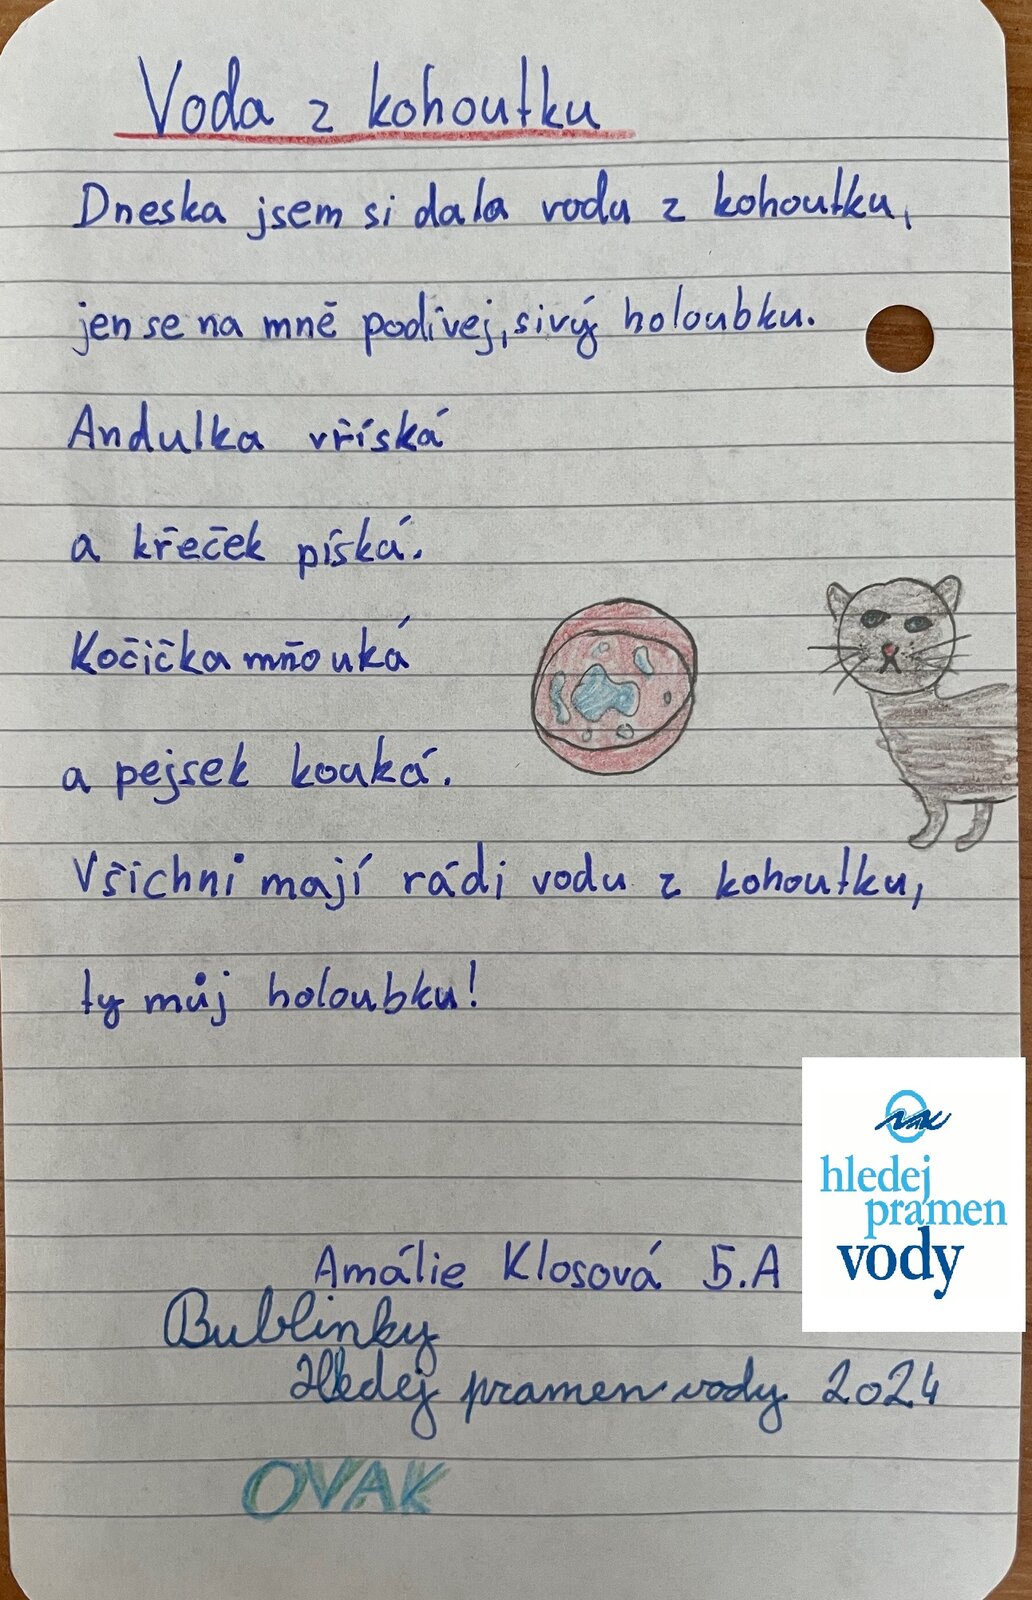 Voda z kohoutku
Dneska jsem si dala vodu z kohoutku,
jen se na mně podívej, sivý holoubku.
Andulka vříská
a křeček píská.
Kočička mňouká
a pejsek kouká.
Všichni mají rádi vodu z kohoutku,
ty můj holoubku!
hledej
pramen
vody
Amálie Klosová 5.A
Bublinky
Hledej pramen vody 2024
OVAK